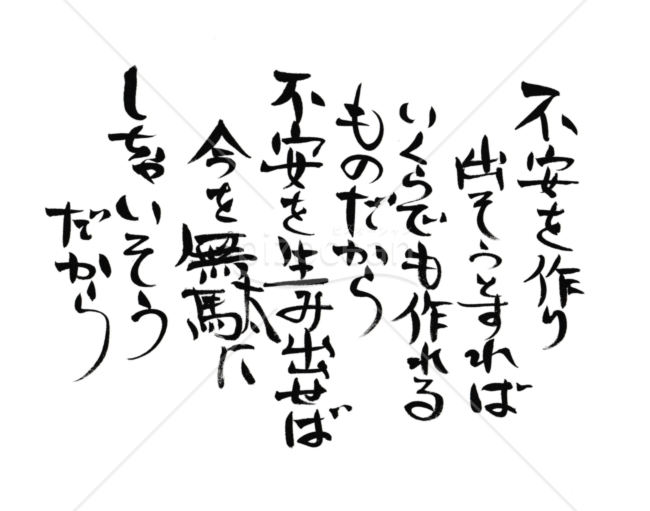 不安を作り
出そうとすれば
いくらでも作れる
ものだから
不安を生み出せば
今を無駄に
しちゃ
いそう
だから